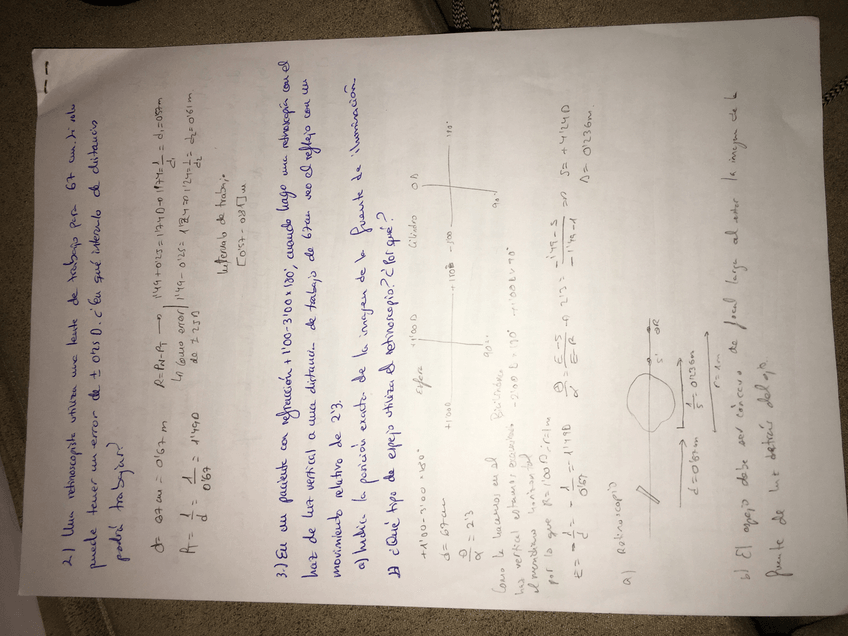 2) Una retinoscopista utiliza una lente de trabajo para 67 cm. Si solo
puede tener un error de ± 0'25 D. ¿En qué intervalo de distancias
podrá trabajar?
d = 67 cm = 0'67 m
R = PH - PT → 1'49 + 0'25 = 1'74D → 1'74 = 1/d1 = d1 = 0'57m
Como error de ± 25D
1'49 - 0'25 = 1'24 → 1'24 = 1/d2 = d2 = 0'81m
PT = 1/d = 1/0'67 = 1'49D
Intervalo de trabajo
[0'57 - 0'81] m
3) En un paciente con refracción +1'00 -3'00 x 180°, cuando hago una retinoscopía con el
haz de luz vertical a una distancia de trabajo de 67cm veo el reflejo con un
movimiento relativo de 2'3.
a) Indica la posición exacta de la imagen de la fuente de iluminación
b) ¿Qué tipo de espejo utiliza el retinoscopio? ¿Por qué?
+1'00 - 3'00 x 180°
Esfera +1'00D
Cilindro OD
d = 67cm
+1'00D
+1'00 -1'00 180°
θ/α = 2'3
90°
90°
Como lo hacemos en el
haz vertical estamos
el meridiano horizontal
por lo que R = 1'00D → r = 1m
-2'00 L = 180° +1'00 L 90°
E = -1/d = -1/0'67 = -1'49D
θ/α = E-S/E-R → 2'3 = -1'49-S/-1'49-1 → S = +4'24D
s = 0'236m
a) Retinoscopio
S' OR
d = 0'67m 1/S = 0'236m
r = 1m
b) El espejo debe ser cóncavo de focal larga al estar la imagen de la
fuente de luz detrás del ojo